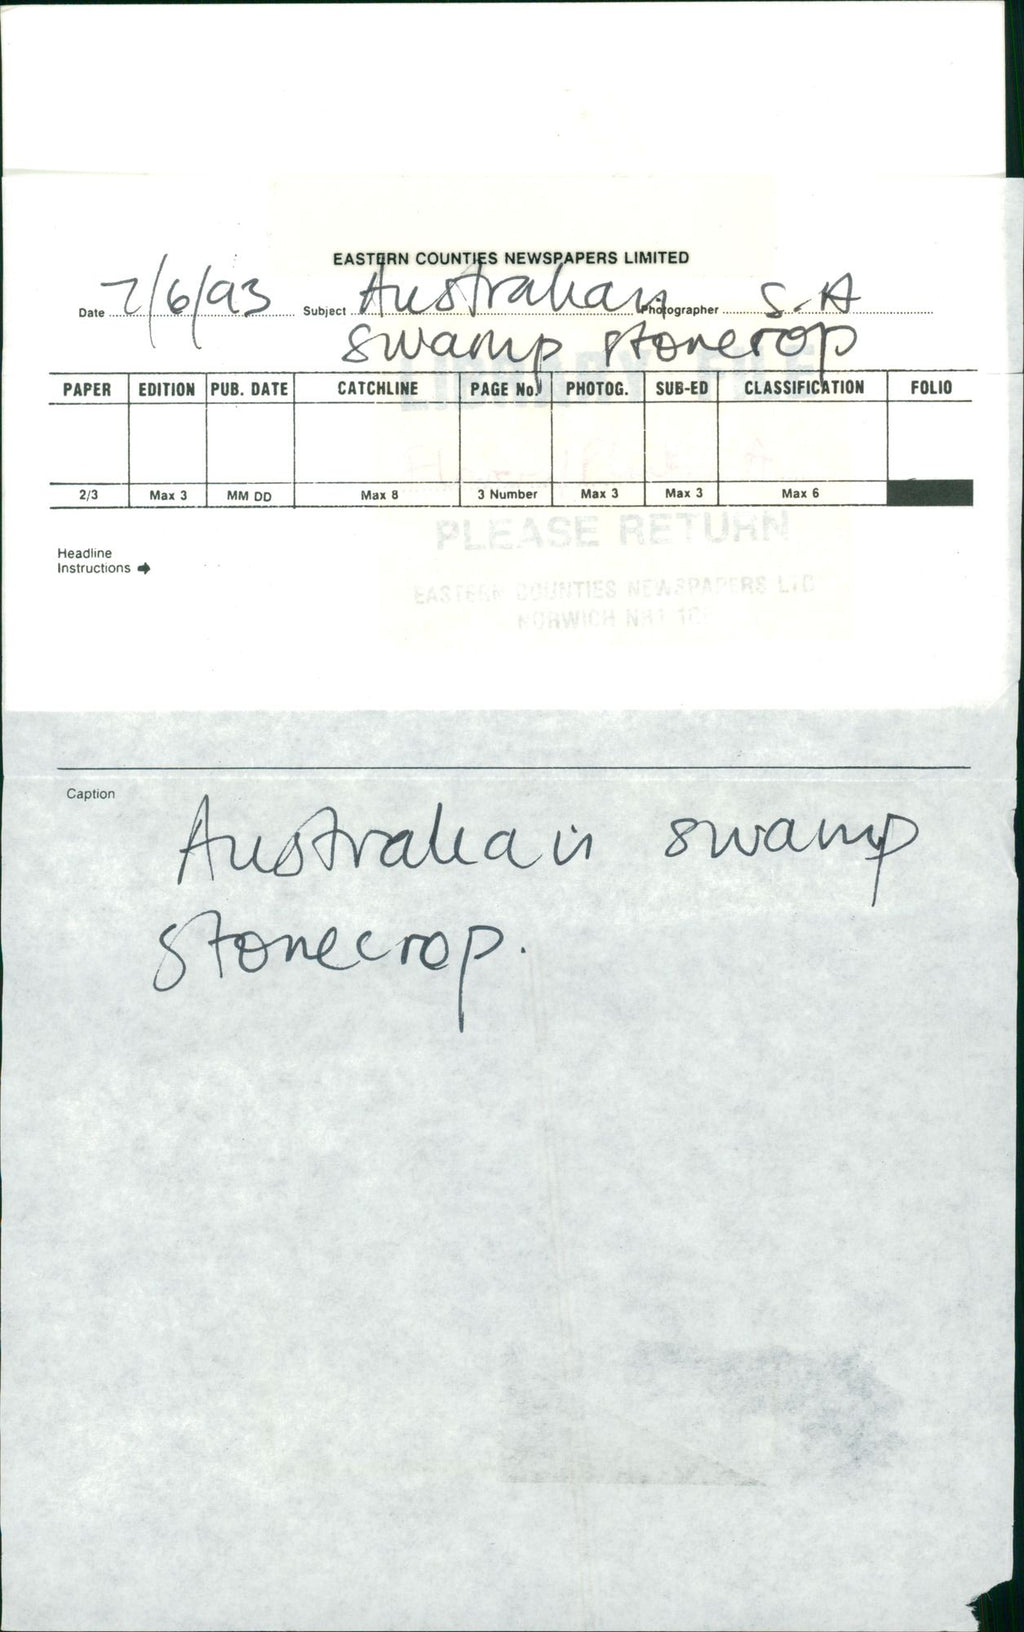 EASTERN COUNTIES NEWSPAPERS LIMITED
Date 7/6/93 Subject Australian Photographer S.A
swamp stonecrop
LIBRARY FILE
PAPER EDITION PUB. DATE CATCHLINE PAGE No. PHOTOG. SUB-ED CLASSIFICATION FOLIO
2/3 Max 3 MM DD Max 8 3 Number Max 3 Max 3 Max 6
PLEASE RETURN
Headline
Instructions
EASTERN COUNTIES NEWSPAPERS LTD
NORWICH NR1
Caption
Australian swamp
stonecrop.